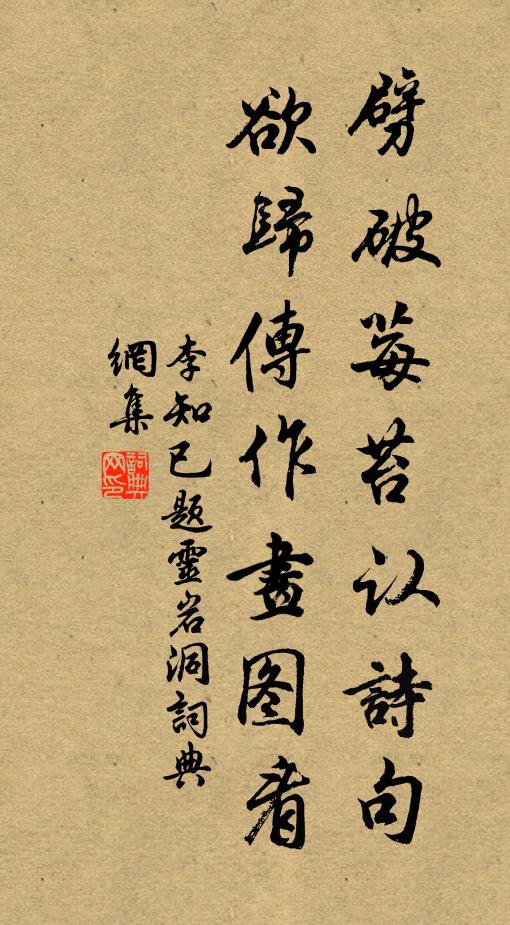 劈破莓苔认詩句
欲歸傳作畫图看
李知已题靈岩洞詞典
網集
詞典网印